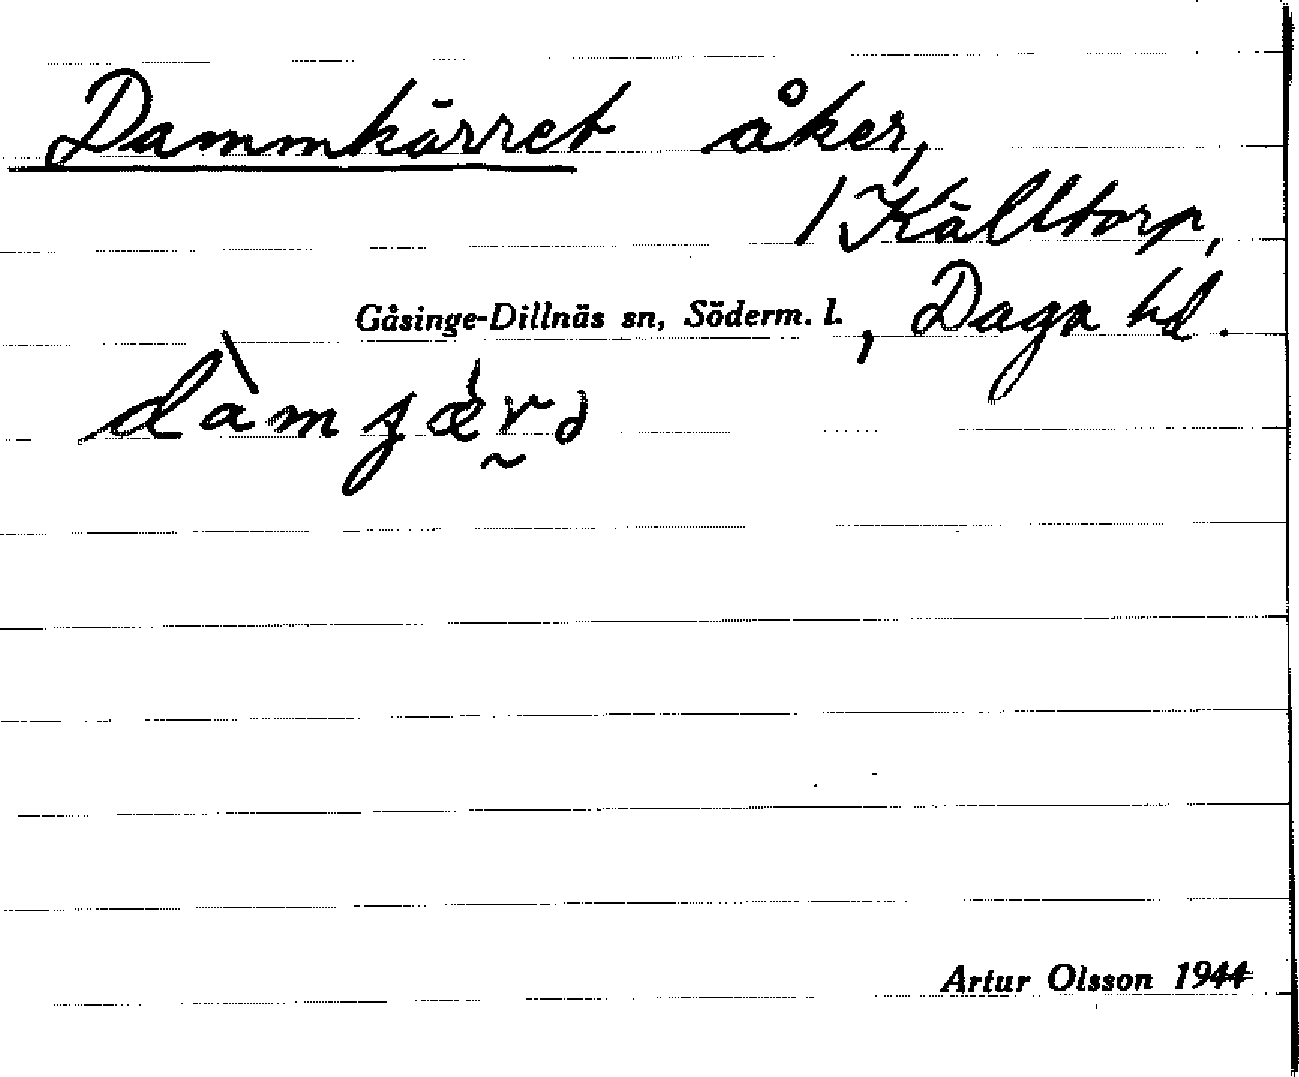 Dammkärret åker,
/ Källtorp,
Gåsinge-Dillnäs sn, Söderm. l., Daga hd.
Artur Olsson 1944